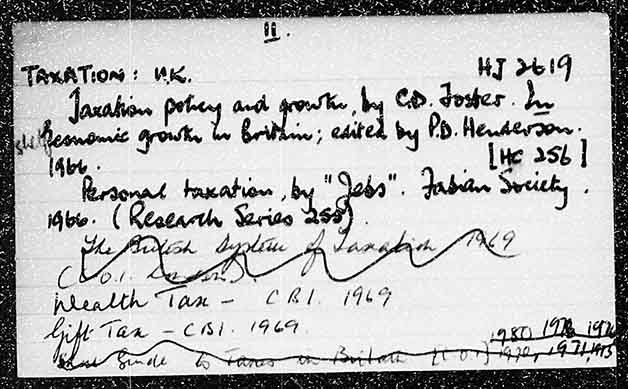 II.
TAXATION: U.K. HJ 2619
Taxation policy and growth, by C.D. Foster. In
shelf Economic growth in Britain; edited by P.D. Henderson.
1966. [HC 256]
Personal taxation, by "Jebs". Fabian Society.
1966. (Research Series 255)
The British System of Taxation 1969
(C.O.I. London).
Wealth Tax - CBI. 1969
Gift Tax - CBI. 1969.
1980 1976
Guide to Taxes in Britain [C.O.I] 1970, 1971, 1975